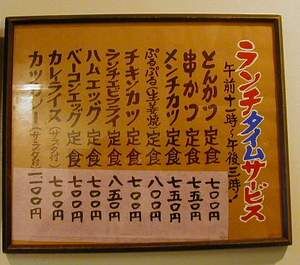 ランチタイムサービス
午前十一時〜午後三時
とんかつ定食 七〇〇円
串かつ定食 七五〇円
メンチカツ定食 七五〇円
ぷるぷる(牛生姜焼)定食 八〇〇円
チキンカツ定食 七〇〇円
ランチエビフライ定食 八五〇円
ハムエッグ定食 七〇〇円
ベーコンエッグ定食 七〇〇円
カレーライス(サラダ付) 七〇〇円
カツカレー(サラダ付)